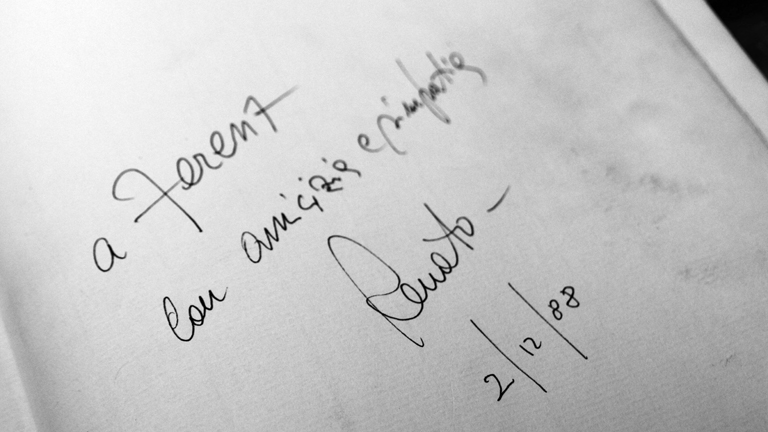 a Ferenz
con amicizia e simpatia
Renato -
2/12/88